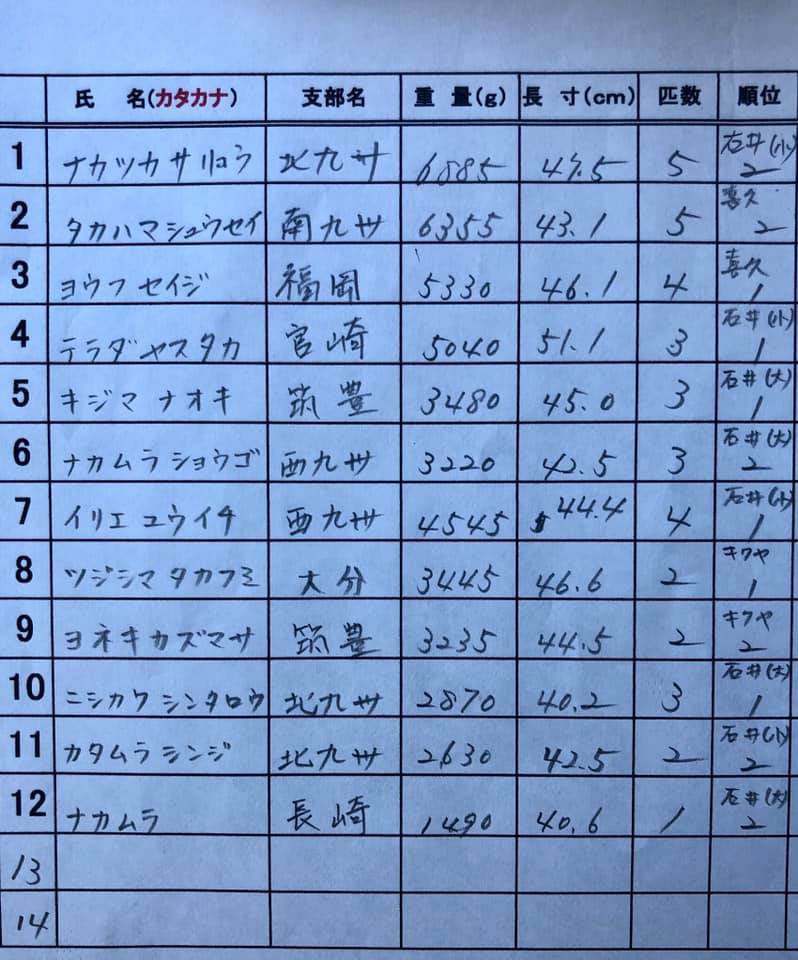 氏 名(カタカナ) 支部名 重 量(g) 長 寸(cm) 匹数 順位
1 ナカツカサリョウ 北九州 6885 47.5 5 石井(小) 2
2 タカハマシュウセイ 南九州 6355 43.1 5 喜久 2
3 ヨウフセイジ 福岡 5330 46.1 4 喜久 1
4 テラダヤスタカ 宮崎 5040 51.1 3 石井(小) 1
5 キジマナオキ 筑豊 3480 45.0 3 石井(大) 1
6 ナカムラショウゴ 西九州 3220 42.5 3 石井(大) 2
7 イリエユウイチ 西九州 4545 44.4 4 石井(小) 1
8 ツジシマタカフミ 大分 3445 46.6 2 キワヤ 1
9 ヨネキカズマサ 筑豊 3235 44.5 2 キワヤ 2
10 ニシカワシンタロウ 北九州 2870 40.2 3 石井(大) 1
11 カタムラシンジ 北九州 2630 42.5 2 石井(小) 2
12 ナカムラ 長崎 1490 40.6 1 石井(大) 2
13
14